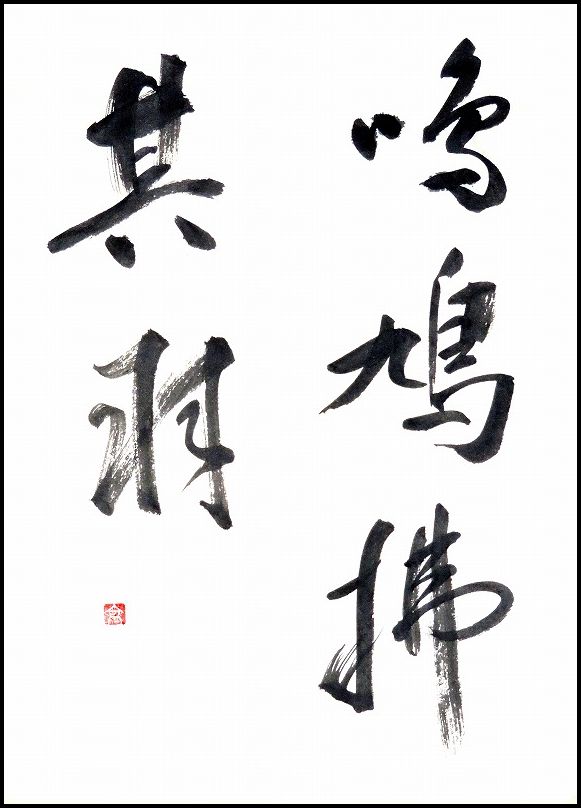 鳴鳩拂
其羽